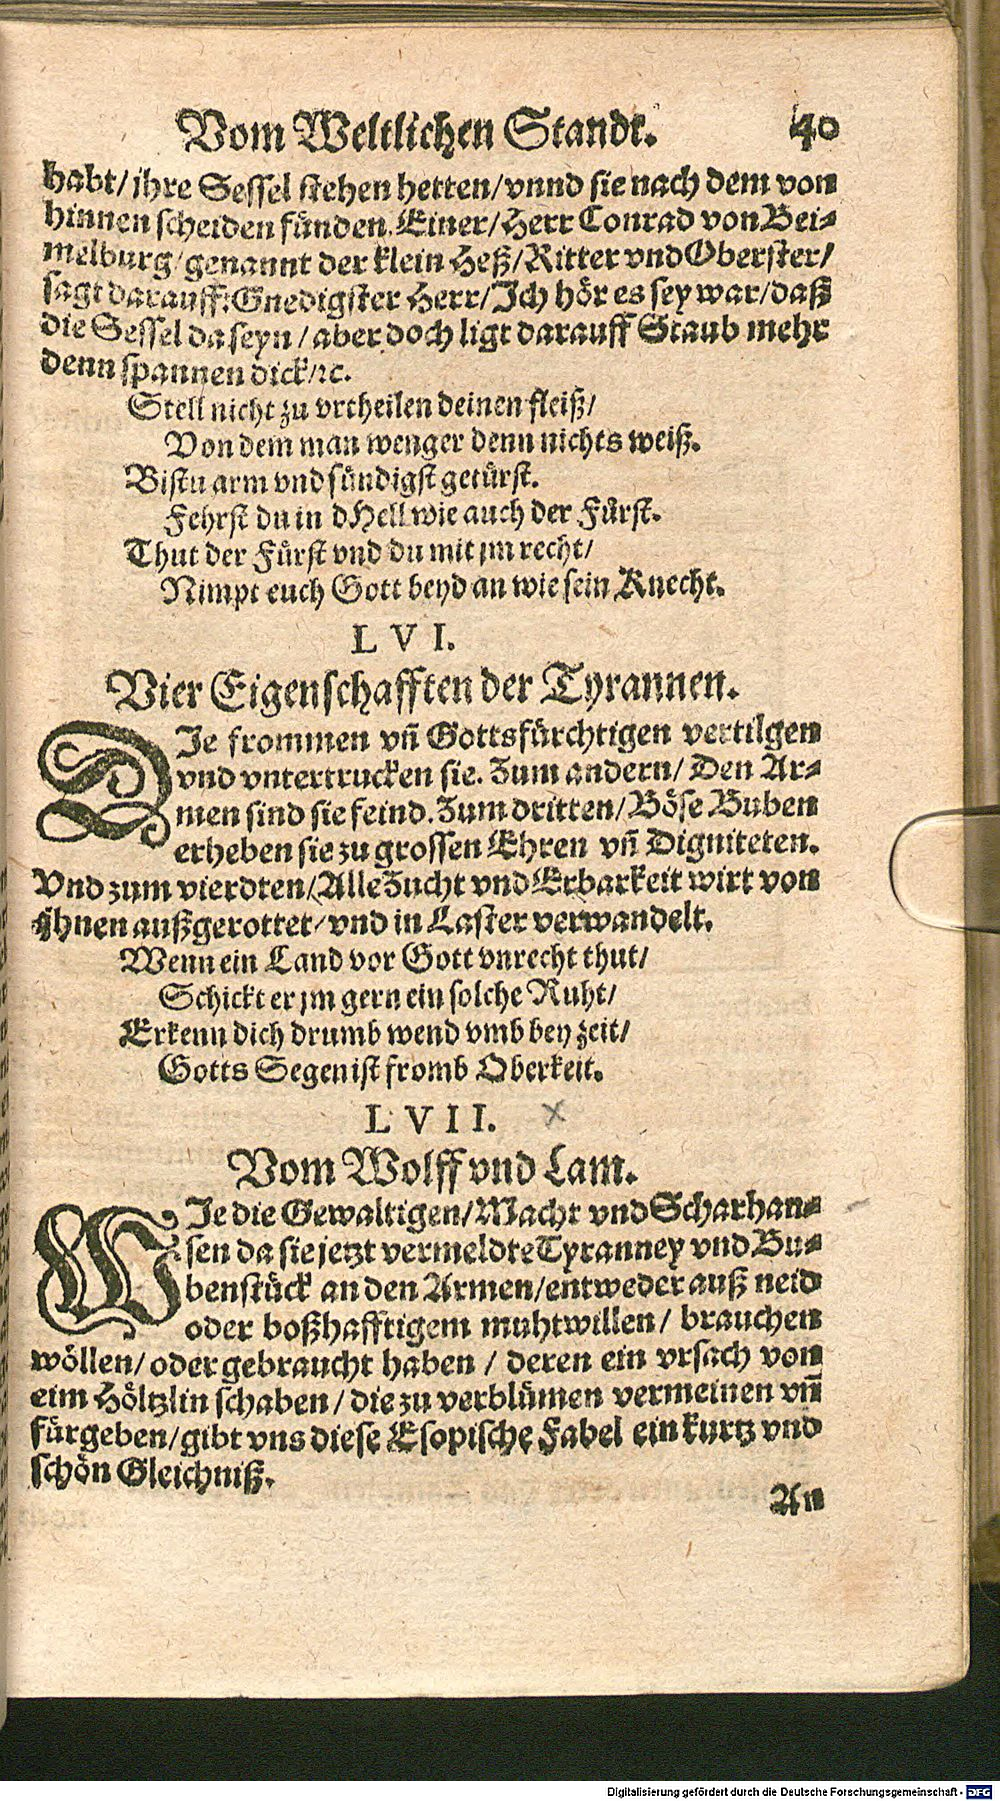 Vom Weltlichen Standt. 40
habt/ ihre Sessel stehen hetten/ vnnd sie nach dem von
hinnen scheiden fünden. Einer/ Herr Conrad von Bei-
melburg/ genannt der klein Heß/ Ritter vnd Oberster/
sagt darauff: Gnedigster Herr/ Ich hör es sey war/ daß
die Sessel da seyn/ aber doch ligt darauff Staub mehr
denn spannen dick/ ꝛc.
Stell nicht zu vrtheilen deinen fleiß/
Von dem man wenger denn nichts weiß.
Bistu arm vnd sündigst getürst.
Fehrst du in dHell wie auch der Fürst.
Thut der Fürst vnd du mit jm recht/
Nimpt euch Gott beyd an wie sein Knecht.
LVI.
Vier Eigenschafften der Tyrannen.
DJe frommen vñ Gottsfürchtigen vertilgen
vnd vntertrucken sie. Zum andern/ Den Ar-
men sind sie feind. Zum dritten/ Böse Buben
erheben sie zu grossen Ehren vñ Digniteten.
Vnd zum vierdten/ Alle Zucht vnd Erbarkeit wirt von
jhnen außgerottet/ vnd in Laster verwandelt.
Wenn ein Land vor Gott vnrecht thut/
Schickt er jm gern ein solche Ruht/
Erkenn dich drumb wend vmb bey zeit/
Gotts Segen ist fromb Oberkeit.
LVII.
Vom Wolff vnd Lam.
WJe die Gewaltigen/ Macht vnd Scharhan-
sen da sie jetzt vermeldte Tyranney vnd Bu-
benstück an den Armen/ entweder auß neid
oder boßhafftigem muhtwillen/ brauchen
wöllen/ oder gebraucht haben/ deren ein vrsach von
eim Höltzlin schaben/ die zu verblümen vermeinen vñ
fürgeben/ gibt vns diese Esopische Fabel ein kurtz vnd
schön Gleichniß.
An
Digitalisierung gefördert durch die Deutsche Forschungsgemeinschaft - DFG